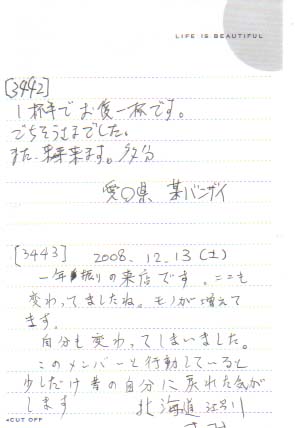 LIFE IS BEAUTIFUL
[3442]
1杯半でお食一杯です。
ごちそうさまでした。
また、来年来ます。多分
愛〇県 某バンザイ
[3443] 2008. 12. 13 (土)
一年振りの来店です。ここも
変わってましたね。モノが増えて
ます。
自分も変わってしまいました。
このメンバーと行動していると
少しだけ昔の自分に戻れた気が
します 北海道江別
CUT OFF